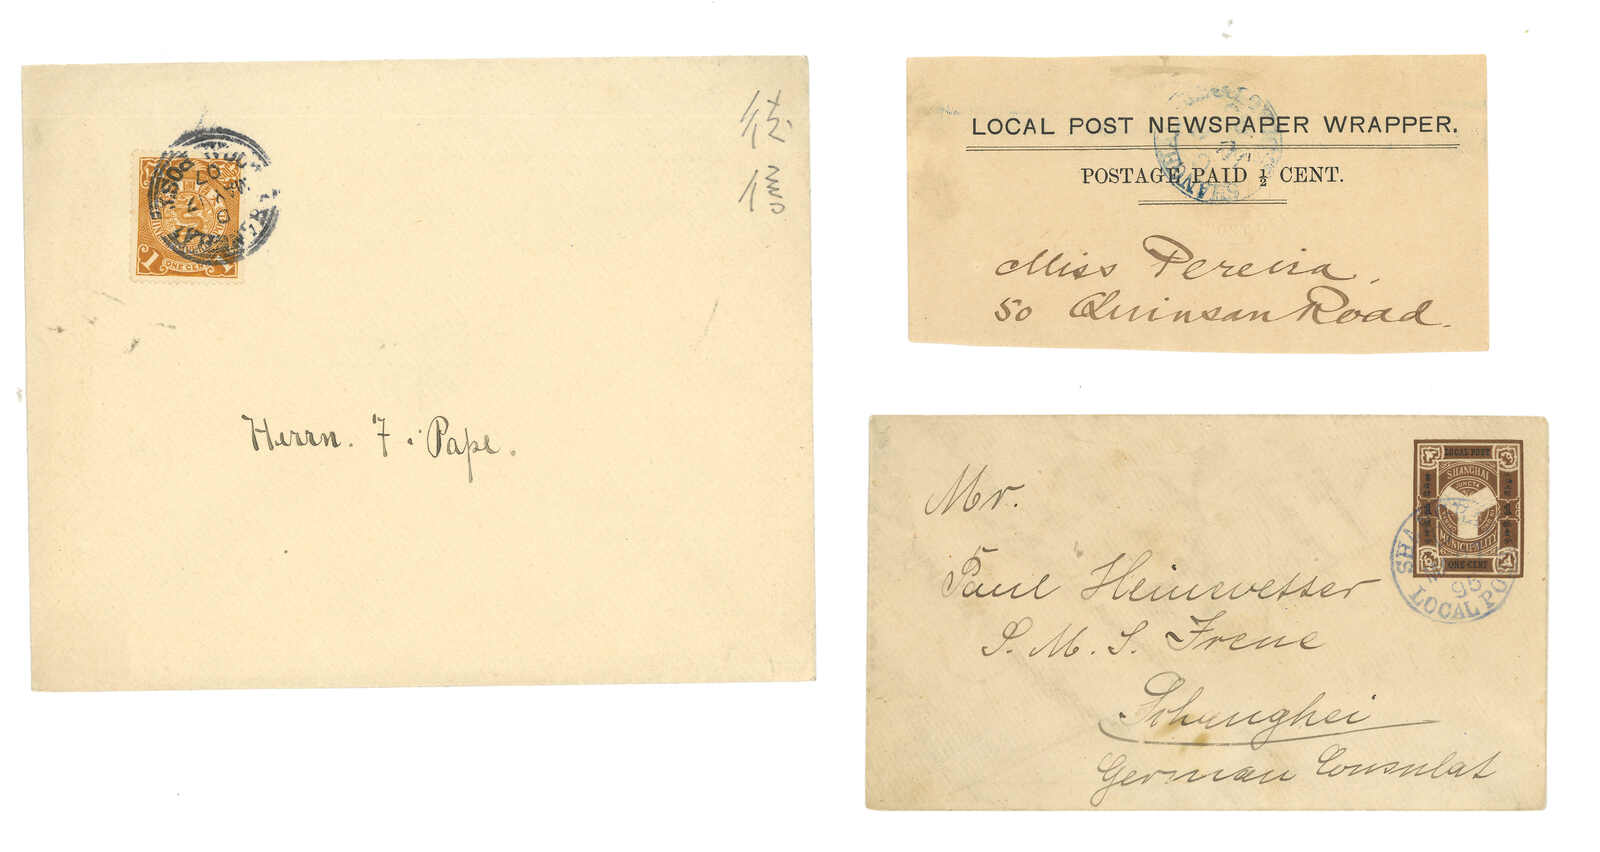 1
ONE CENT
1
Herrn. F. Pape.
信
LOCAL POST NEWSPAPER WRAPPER.
POSTAGE PAID ½ CENT.
Miss Pereira,
50 Quinsan Road.
LOCAL POST
SHANGHAI
MUNICIPALITY
ONE CENT
SHA
95
LOCAL PO
Mr.
Paul Heinevetter
S. M. S. Irene
Schanghei
German Consulat